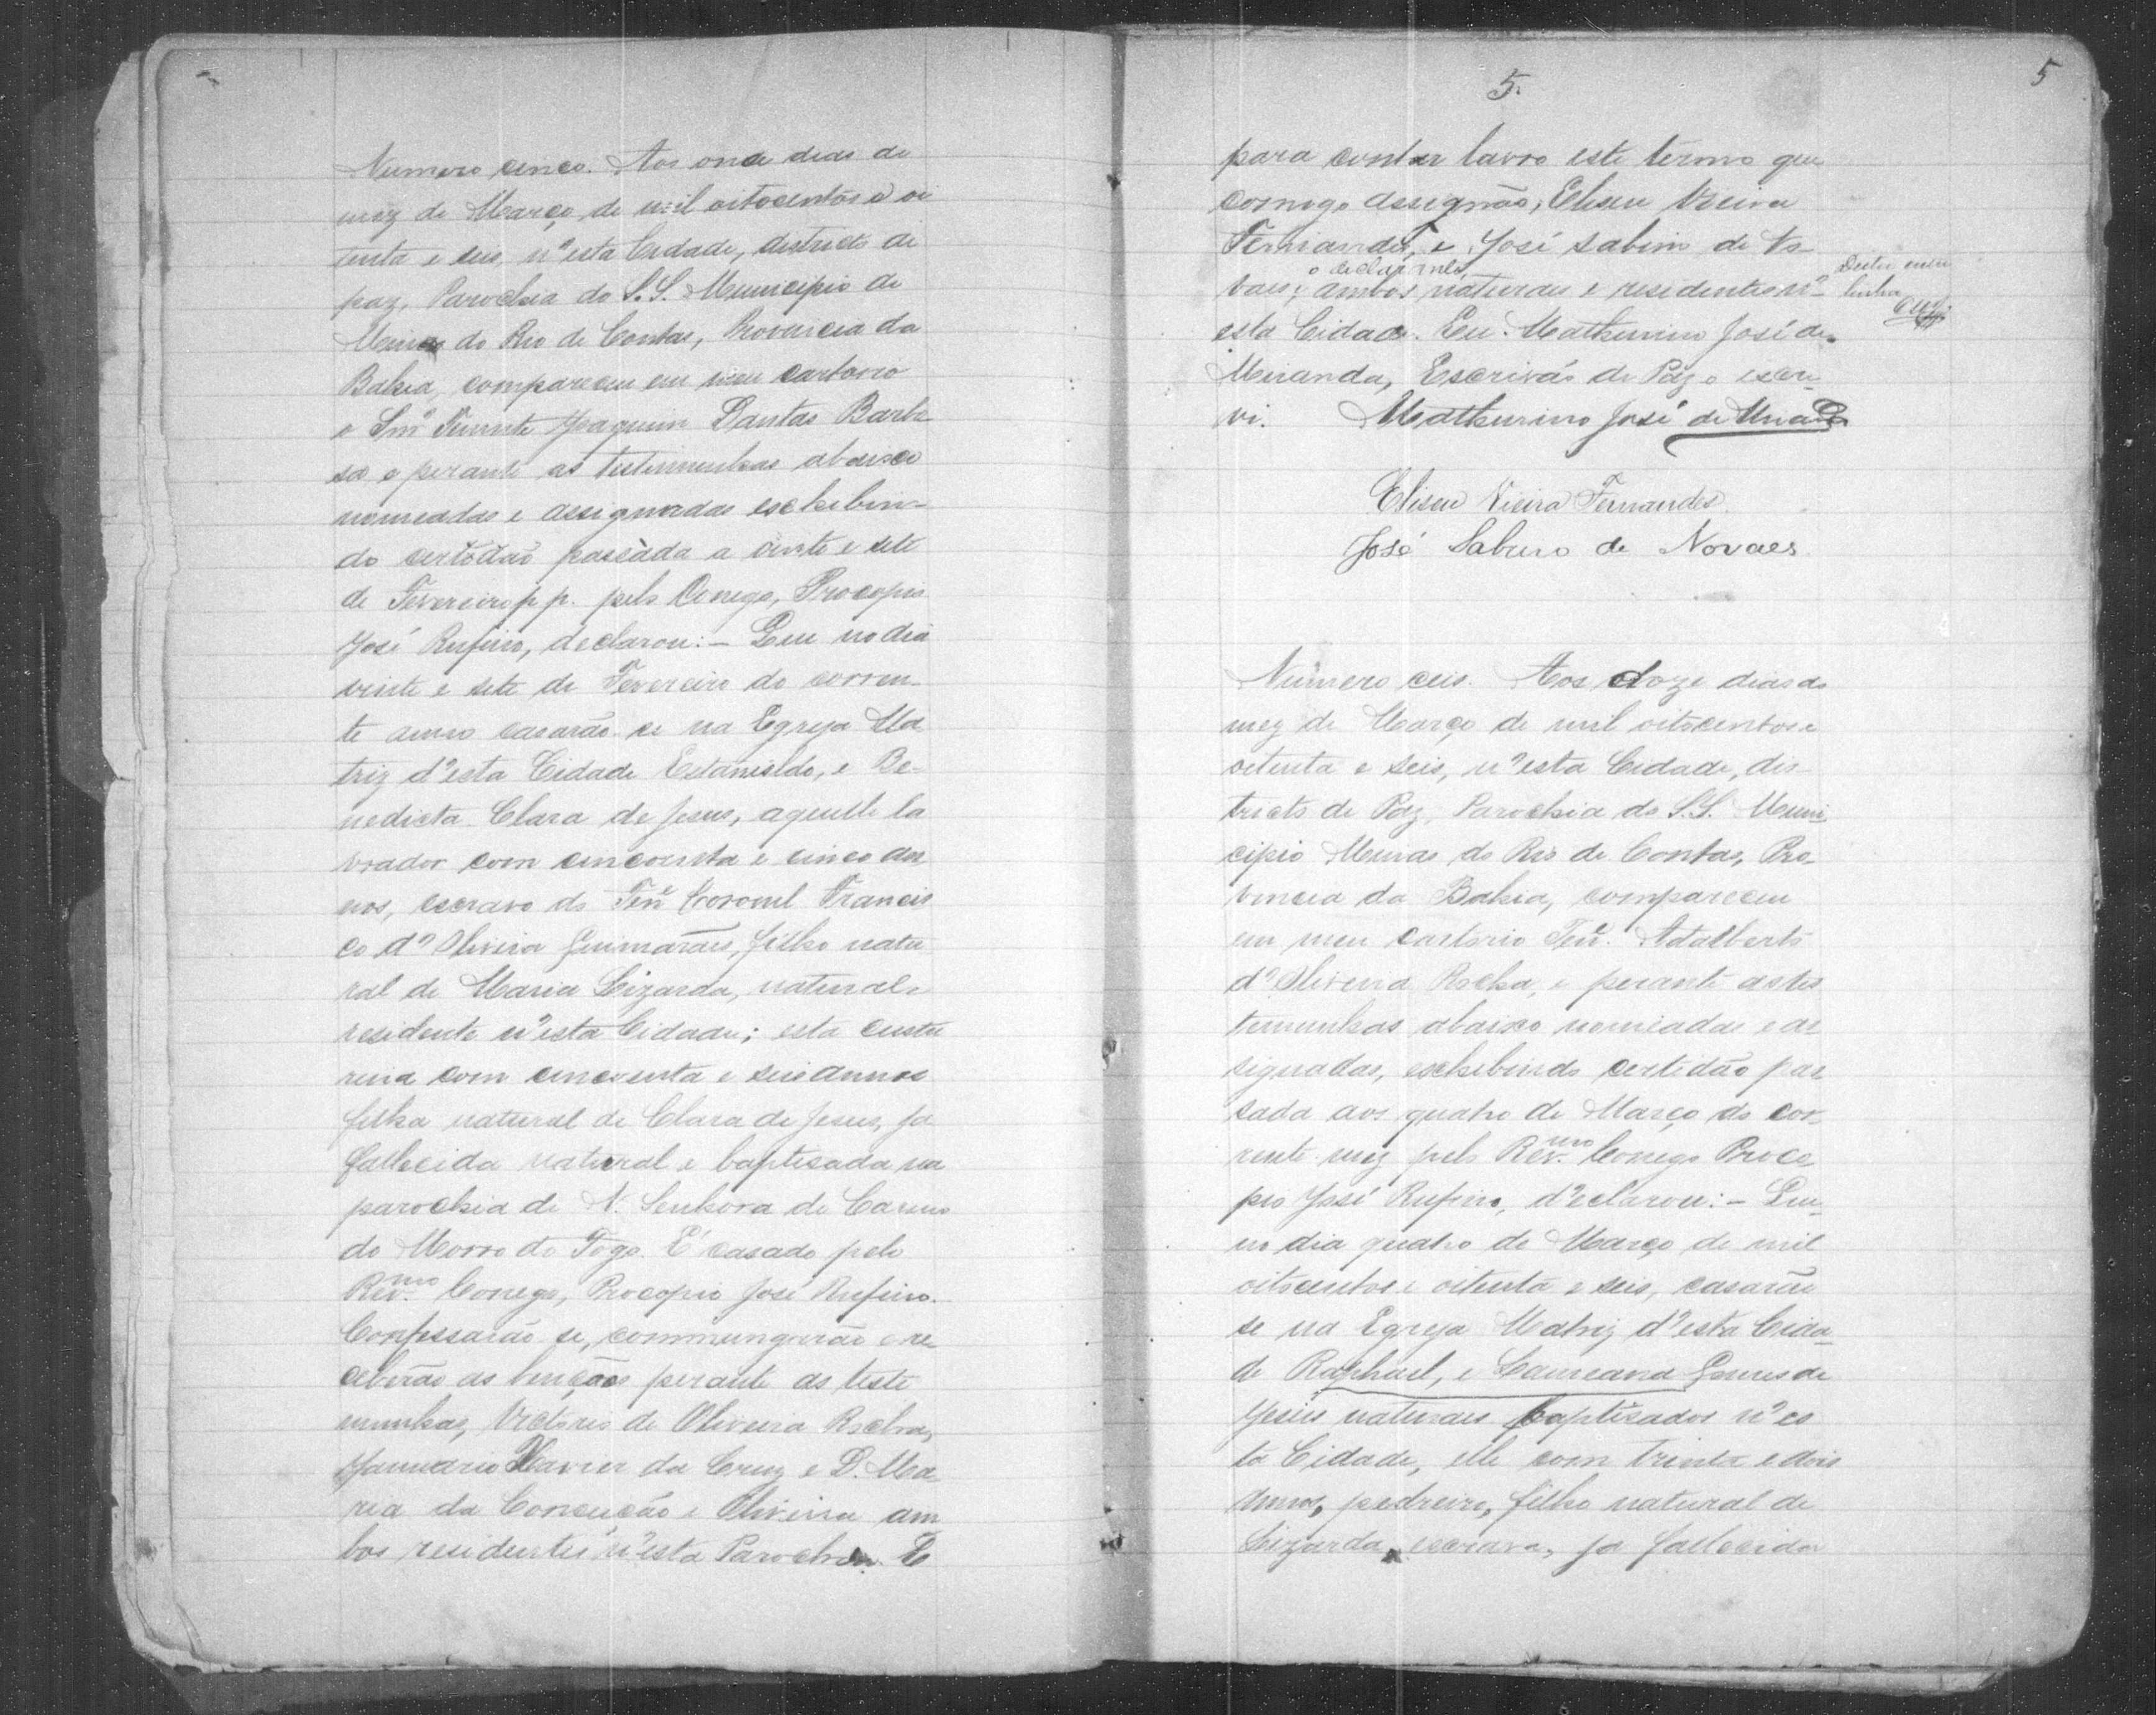 Numero cinco. Aos onze dias do
mez de Março de mil oitocentos e oi
tenta e seis, n'esta Cidade, districto de
paz, Parochia do S.S. Municipio de
Minas do Rio de Contas, Provincia da
Bahia, compareceu em meu cartorio
o Snr Tenente Joaquim Dantas Barbo
sa e perante as testemunhas abaixo
nomeadas e assignadas exhibin-
do certidão passada a vinte e sete
de Fevereiro p.p. pelo Conego, Procopio
José Rufino, declarou:- Que no dia
vinte e sete de Fevereiro do corren-
te anno casarão se na Egreja Ma
triz d'esta Cidade Estanisldo, e Be-
nedicta Clara de Jesus, aquelle la
vrador com cincoenta e cinco an
nos, escravo do Ten Coronel Francis
co d'Oliveira Guimarães, filho natu
ral de Maria Lizarda, natural e
residente n'esta Cidade; esta custu
reira com cincoenta e seis annos
filha natural de Clara de Jesus, ja
fallecida natural e baptisada na
parochia de N. Senhora do Carmo
do Morro do Fogo. E' casado pelo
Rev.mo Conego, Procopio José Rufino.
Confessarão se, commungarão e re-
ceberão as bençãos perante as teste
munhas, Victorio de Oliveira Rocha,
Januario Xavier da Cruz e D. Ma
ria da Conceição e Oliveira am
bos residentes n'esta Parochia. E
5
5.
para constar lavro este termo que
comogo assignão, Eliseu Vieira
Fernandes, e José Sabino de No
o declarante,
vaes; ambos naturaes e residentes n'
esta Cidade. Eu Mathurino José de
Miranda, Escrivão de Paz o escre
vi. Mathurino José de Miranda
Eliseu Vieira Fernandes.
José Sabino de Novaes
Número ceis. Aos doze dias do
mez de Março de mil oitocentos e
oitenta e seis, n'esta Cidade, dis
tricto de Paz, Parochia do S.S. Muni
cipio Minas do Rio de Contas, Pro-
vincia da Bahia, compareceu
em meu cartorio Ten. Adalberto
d'Oliveira Rocha, e perante as tes
temunhas abaixo nomeadas e as
signadas, exhibindo certidão pas
sada aos quatro de Março do cor-
rente mez pelo Rev.mo Conego Proco
pio José Rufino, d'eclarou:- Que
no dia quatro de Março de mil
oitocentos e oitenta e seis, casarão
se na Egreja Matriz d'esta Cida-
de Raphael, e Laureana Gomes de
Jesus naturaes baptisados n'es
ta Cidade, elle com trinta e dois
annos, pedreiro, filho natural de
Lizarda, escrava, ja fallecida